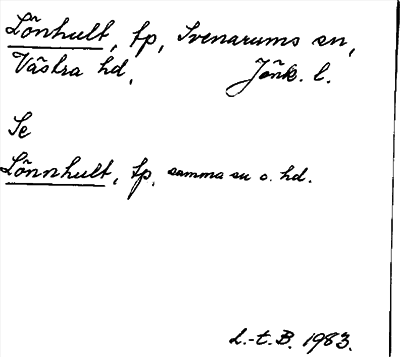 Lönhult, tp, Svenarums sn,
Västra hd, Jönk. l.
Se
Lönnhult, tp, samma sn o. hd.
L.-t.B. 1983.